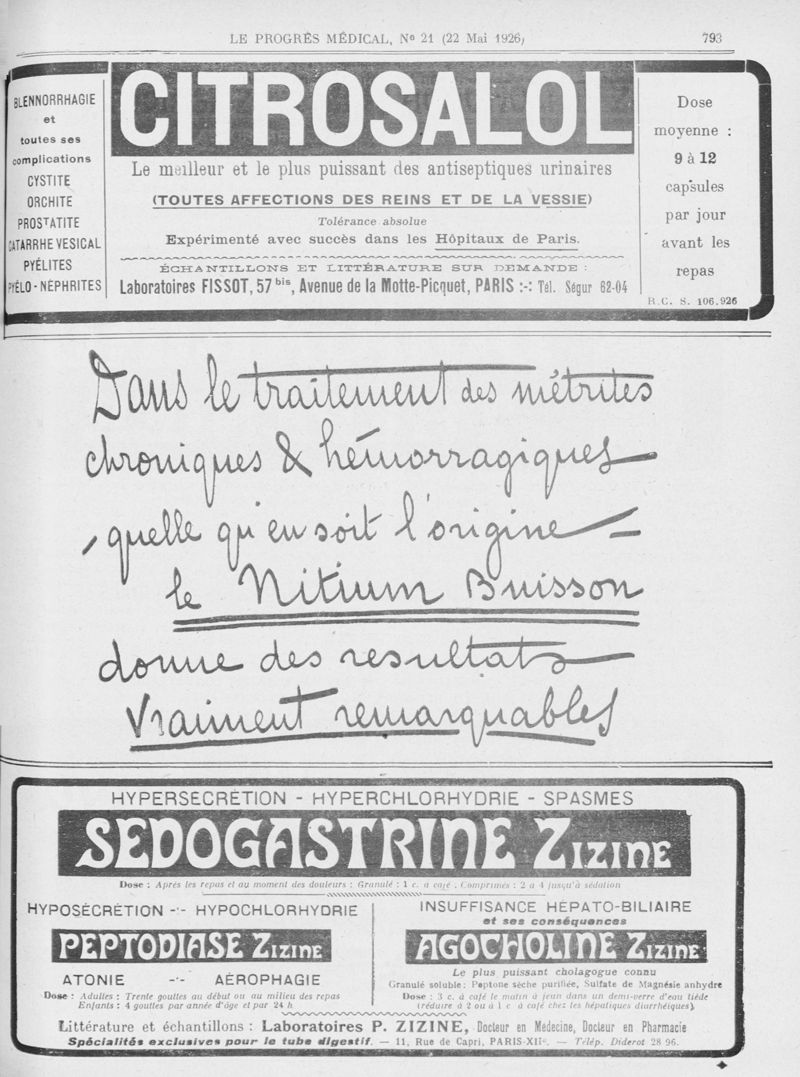 LE PROGRÈS MÉDICAL, No 21 (22 Mai 1926) 793
BLENNORRHAGIE
et
toutes ses
complications
CYSTITE
ORCHITE
PROSTATITE
CATARRHE VESICAL
PYÉLITES
PYÉLO-NÉPHRITES
CITROSALOL
Le meilleur et le plus puissant des antiseptiques urinaires
(TOUTES AFFECTIONS DES REINS ET DE LA VESSIE)
Tolérance absolue
Expérimenté avec succès dans les Hôpitaux de Paris.
ÉCHANTILLONS ET LITTÉRATURE SUR DEMANDE :
Laboratoires FISSOT, 57 bis, Avenue de la Motte-Picquet, PARIS :-: Tél. Ségur 62-04
Dose
moyenne :
9 à 12
capsules
par jour
avant les
repas
R. C. S. 106.926
Dans le traitement des métrites
chroniques & hémorragiques
, quelle qu'en soit l'origine –
le Nitium Buisson
donne des resultats
vraiment remarquables
HYPERSECRÉTION - HYPERCHLORHYDRIE - SPASMES
SEDOGASTRINE ZIZINE
Dose : Après les repas et au moment des douleurs : Granulé : 1 c. a café . Comprimés : 2 a 4 jusqu'à sédation
HYPOSÉCRÉTION -:- HYPOCHLORHYDRIE
PEPTODIASE ZIZINE
ATONIE -:- AÉROPHAGIE
Dose : Adultes : Trente gouttes au début ou au milieu des repas
Enfants : 4 gouttes par année d'âge et par 24 h
INSUFFISANCE HÉPATO-BILIAIRE
et ses conséquences
AGOCHOLINE ZIZINE
Le plus puissant cholagogue connu
Granulé soluble : Peptone sèche purifiée, Sulfate de Magnésie anhydre
Dose : 3 c. à café le matin à jeun dans un demi-verre d'eau tiède
(réduire à 2 ou à 1 c à café chez les hépatiques diarrhéiques).
Littérature et échantillons : Laboratoires P. ZIZINE, Docteur en Médecine, Docteur en Pharmacie
Spécialités exclusives pour le tube digestif. — 11, Rue de Capri, PARIS-XIIe. — Télép. Diderot 28 96.